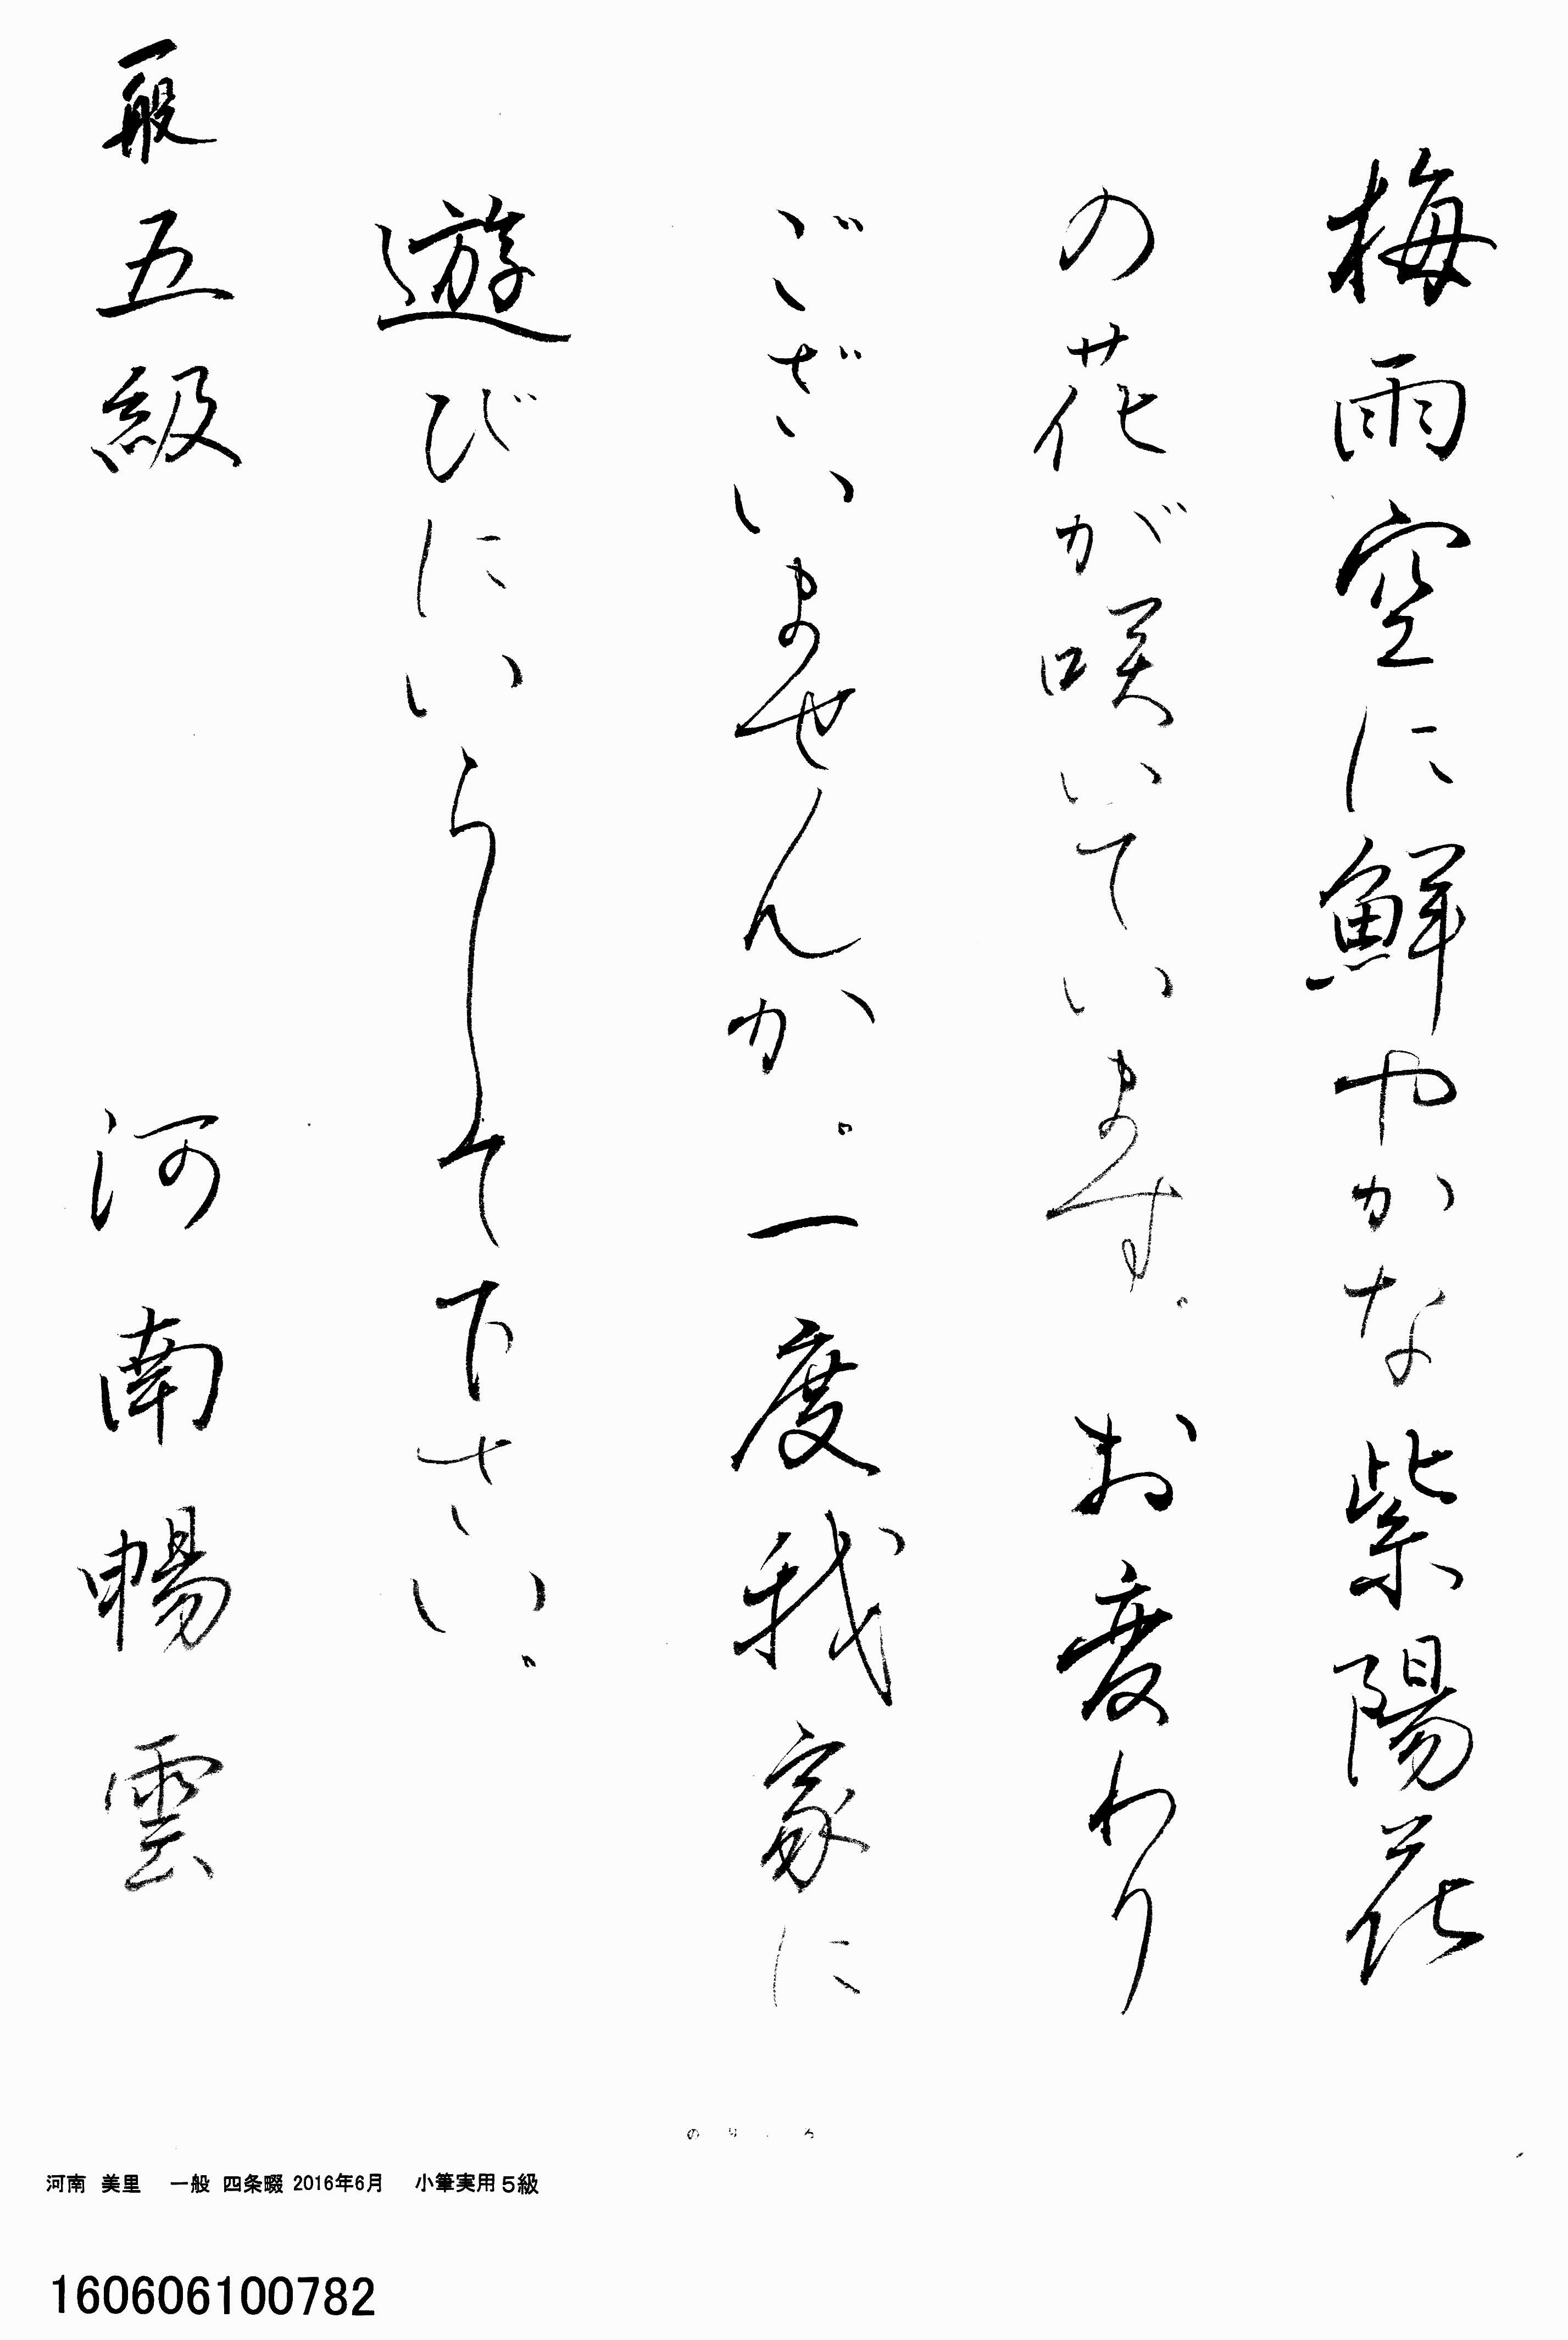 梅雨空に鮮やかな紫陽花
の花が咲いています。お変わり
ございませんか。一度我家に
遊びにいらして下さい。
一般 五級 河南暢雲
のりしろ
河南 美里 一般 四条畷 2016年6月 小筆実用5級
160606100782